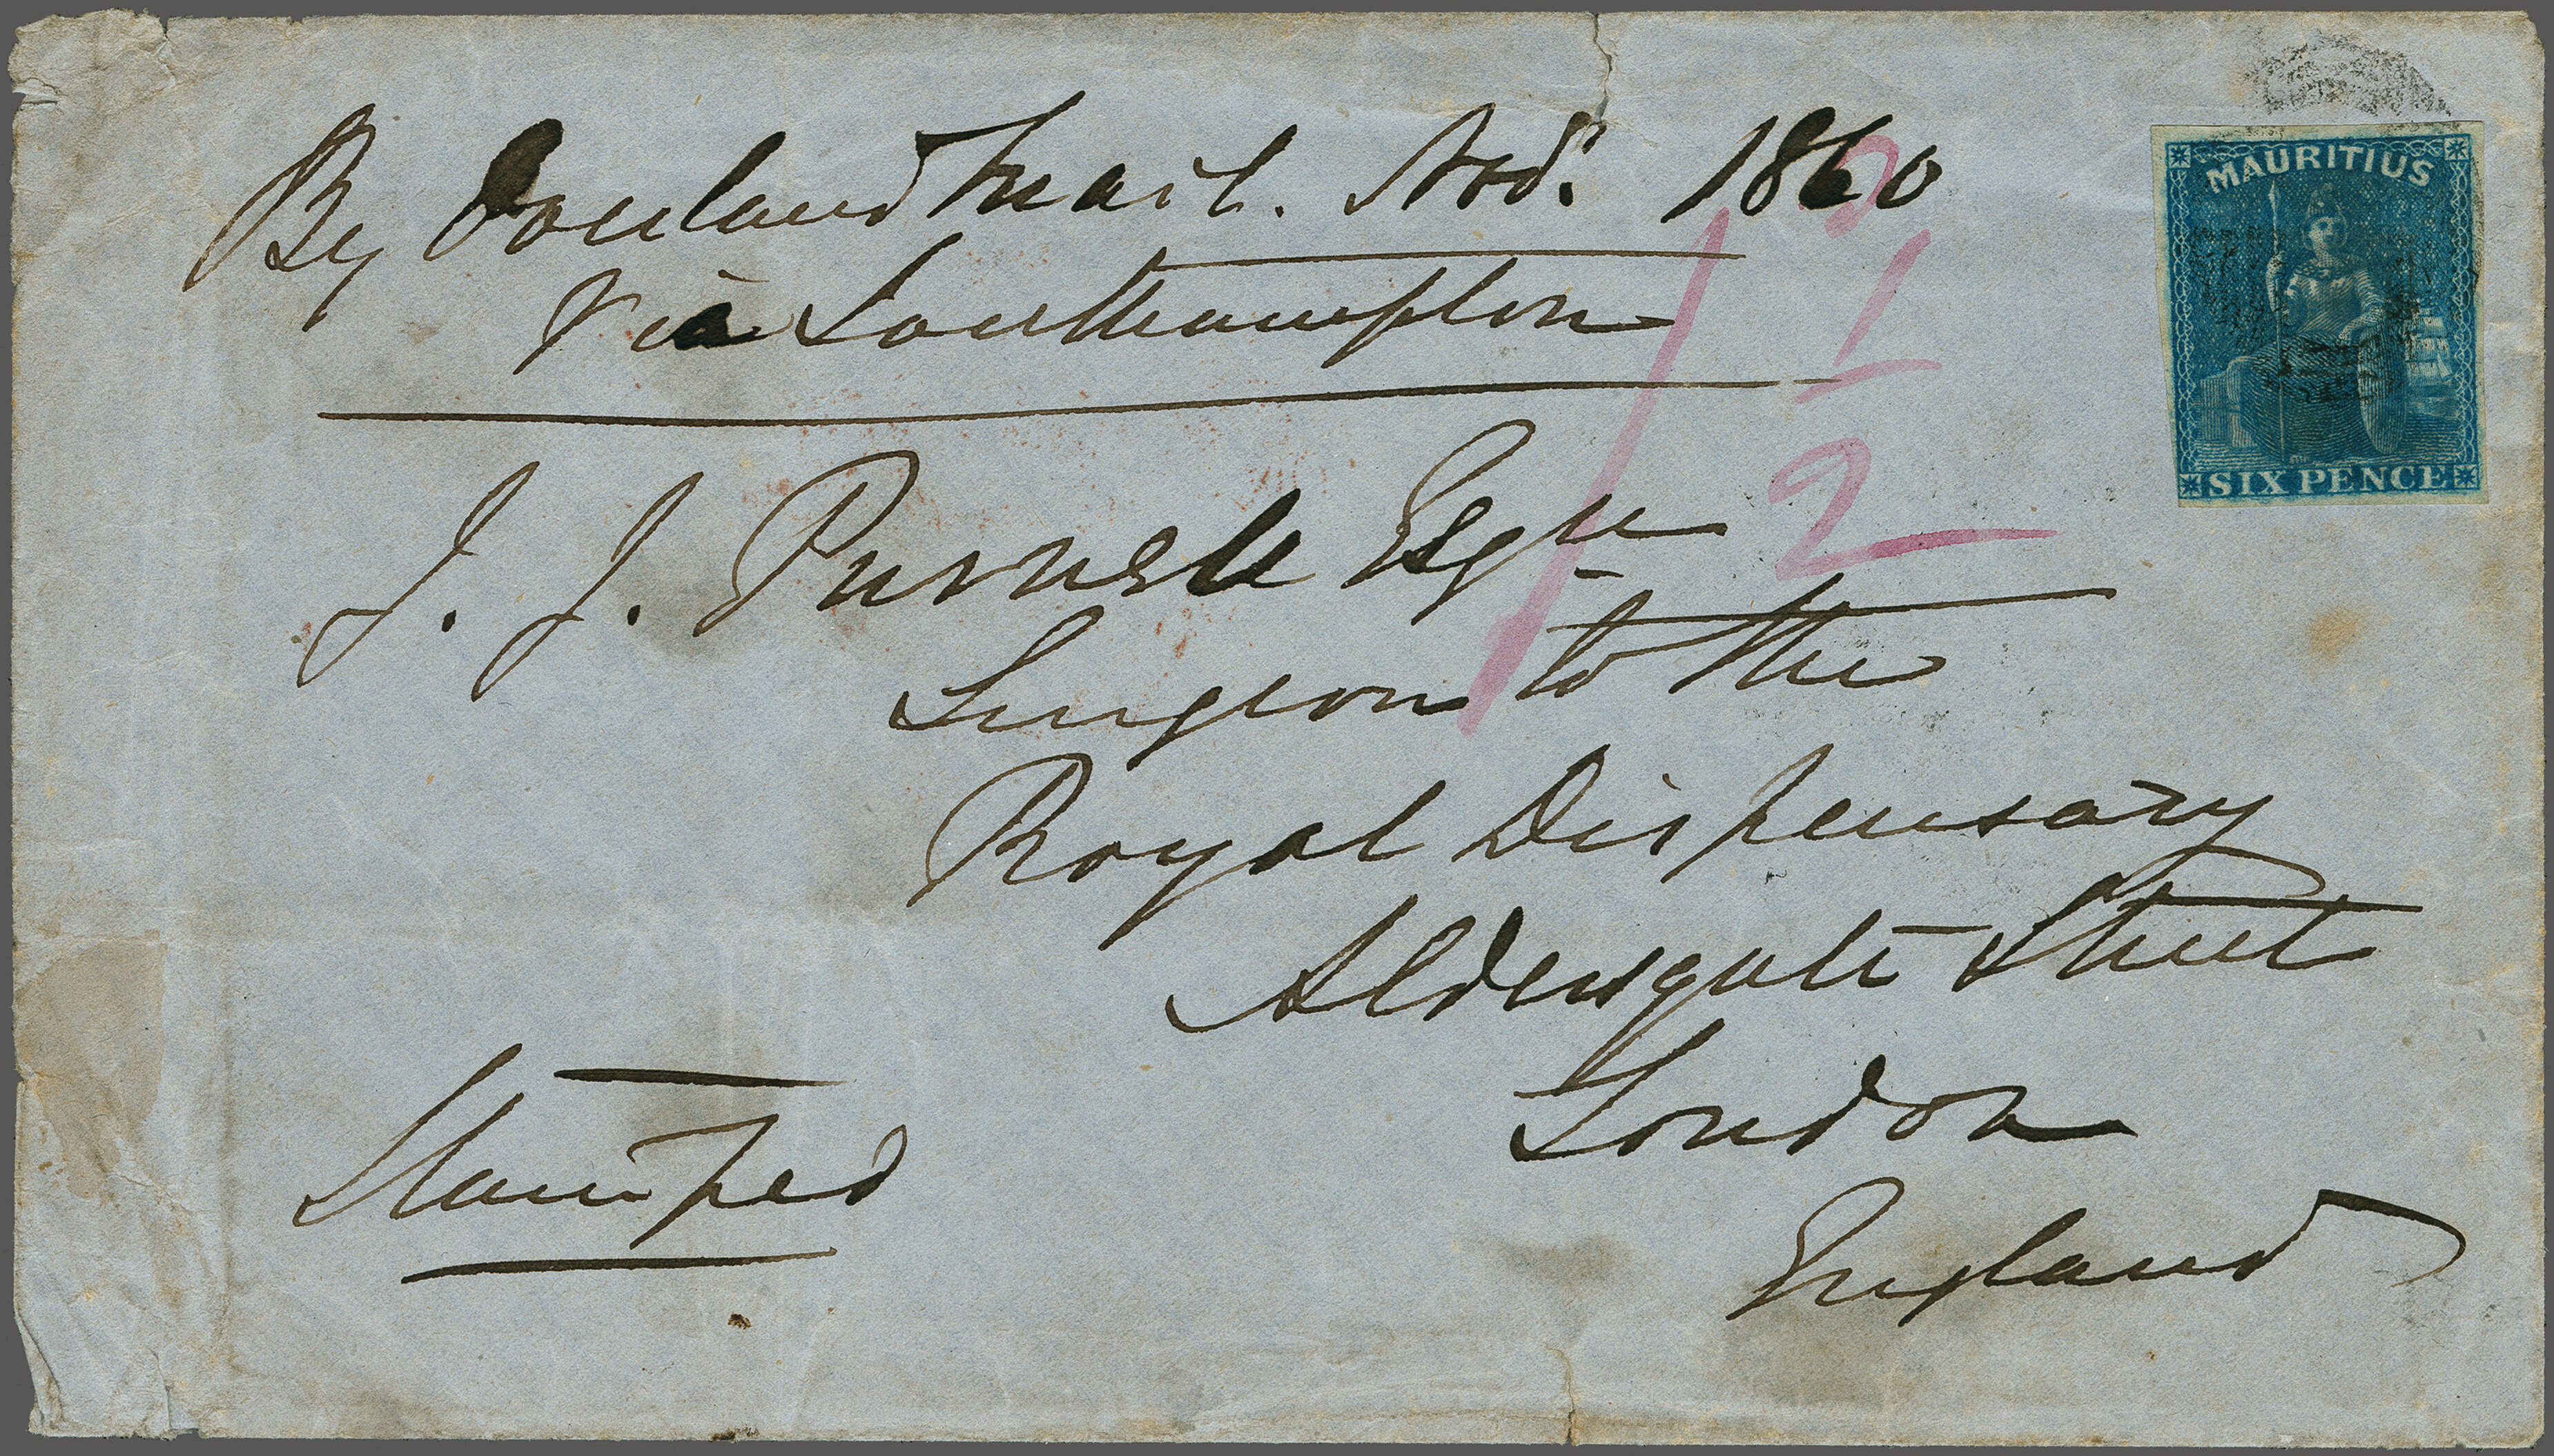 By Overland Mail. Novr. 1860
Via Southampton
MAURITIUS
SIX PENCE
1
2
J. J. Purnell Esqre
Surgeon to the
Royal Dispensary
Aldersgate Street
London
England
Stamped